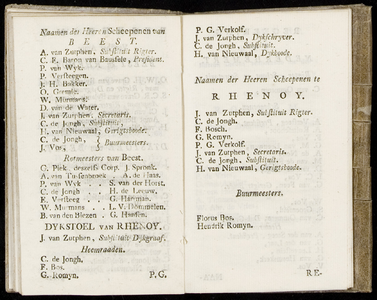 Naamen der Heeren Scheepenen van
BEEST.
A. van Zutphen, Substituit Rigter.
C. F. Baron van Buufele, President.
P. van Wyk.
P. Versteegen.
J. H. Bakker.
O. Germs.
W. Murmans.
D. van de Water.
J. van Zutphen, Secretaris.
C. de Jongh, Substituit.
H. van Nieuwaal, Gerigtsbode.
C. de Jongh,
J. Vos, } Buurmeesters.
Rotmeesters van Beest.
C. Piek J. Spronk.
A. van A. de Haas.
P. van Wyk . . S. van der Horst.
C. de Jongh . . H. de Leeuw.
E. Versteeg . . G. Harman.
W. Murmans . . L. V. Dommelen.
B. van den Biezen . G. Hansen.
DYKSTOEL VAN RHENOY.
J. van Zutphen, Substituit Dijkgraaf.
Heemraaden.
C. de Jongh.
F. Bos.
G. Romyn. P.G.
P. G. Verkolf.
J. van Zutphen, Dykschryver.
C. de Jongh, Substituit.
H. van Nieuwaal, Dykbode.
Naamen der Heeren Scheepenen te
RHENOY.
J. van Zutphen, Substituit Rigter.
C. de Jongh.
F. Bosch.
G. Romyn.
P. G. Verkolf.
J. van Zutphen, Secretaris.
C. de Jongh, Substituit.
H. van Nieuwaal, Gerigtsbode.
Buurmeesters.
Florus Bos.
Hendrik Romyn.
RE.